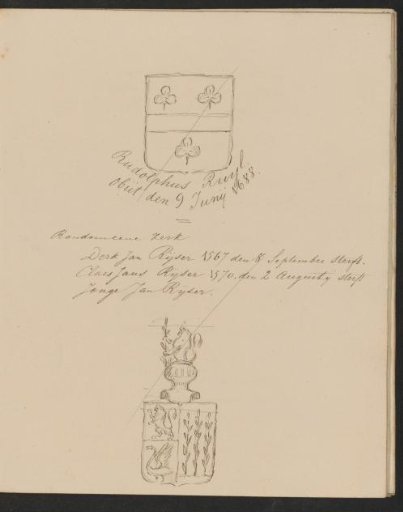 Rudolphus Ruijl
Obiit den 9 Junij 1688.
Kerk
Derk Jan Ryser 1567 den 8 September sterft.
Claes Jans Ryser 1570 den 2 Augusty sterft
Jonge Jan Ryser.